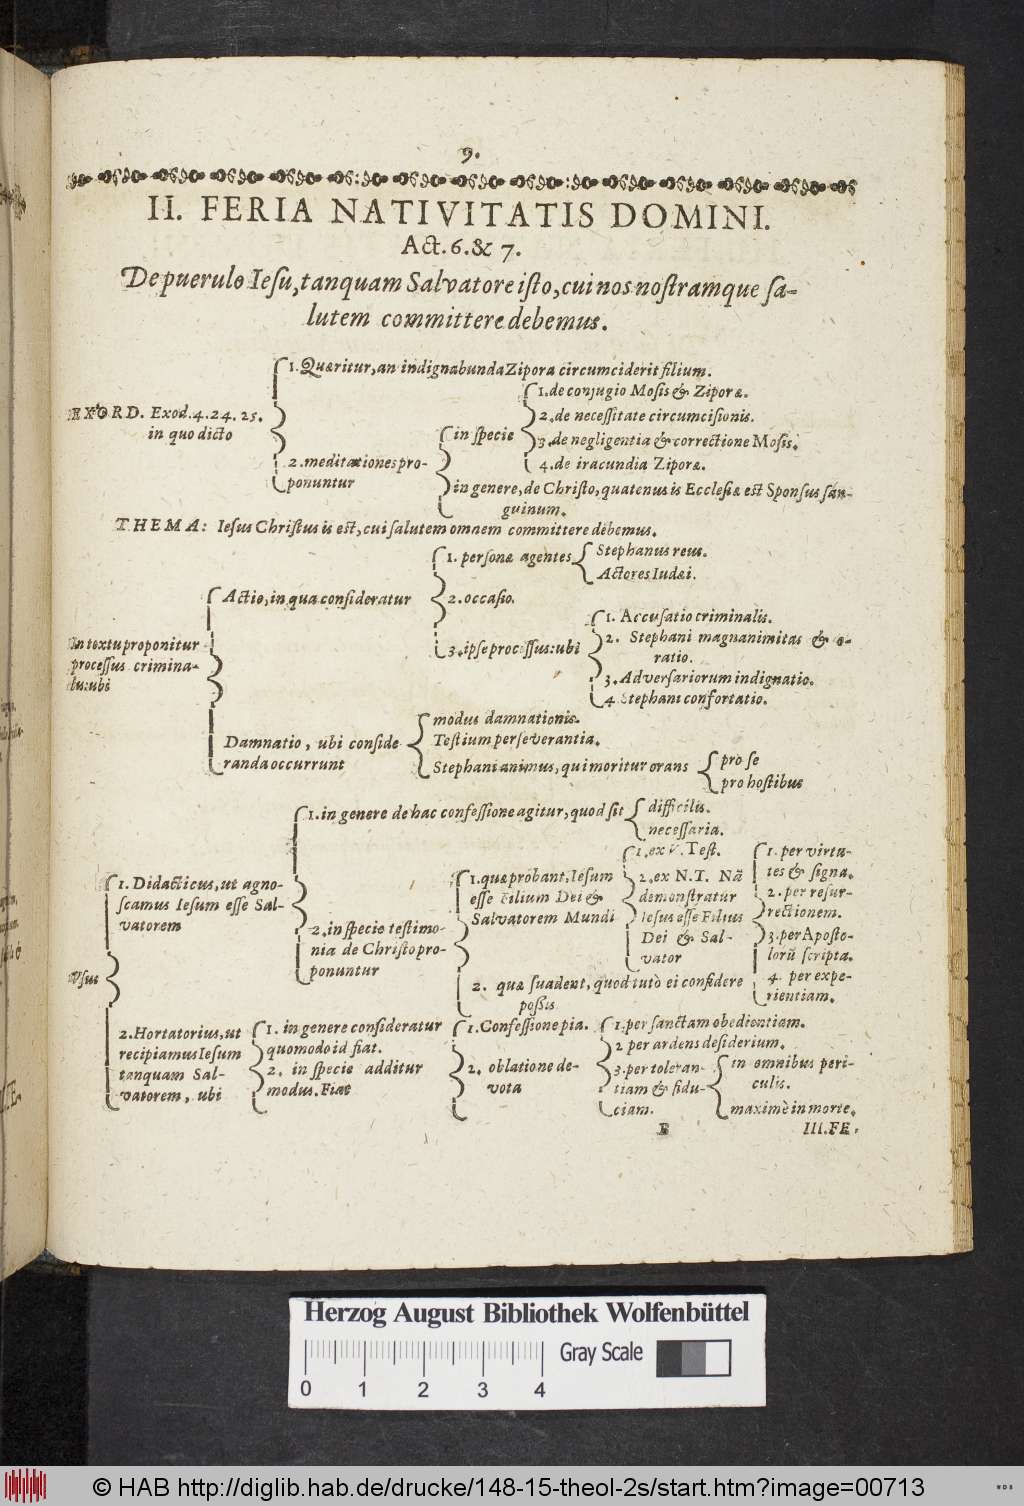 9.
II. FERIA NATIVITATIS DOMINI.
Act. 6. & 7.
De puerulo Iesu, tanquam Salvatore isto, cui nos nostramque sa-
lutem committere debemus.
EXORD. Exod. 4. 24. 25.
in quo dicto
1. Quæritur, an indignabunda Zipora circumciderit filium.
2. meditationes pro-
ponuntur
in specie
1. de conjugio Mosis & Ziporæ.
2. de necessitate circumcisionis.
3. de negligentia & correctione Mosis.
4. de iracundia Ziporæ.
in genere, de Christo, quatenus is Ecclesiæ est Sponsus san-
guinum.
THEMA: Iesus Christus is est, cui salutem omnem committere debemus.
In textu proponitur
processus crimina-
lis: ubi
Actio, in qua consideratur
1. personæ agentes
Stephanus reus.
Actores Iudæi.
2. occasio.
3. ipse processus: ubi
1. Accusatio criminalis.
2. Stephani magnanimitas & o-
ratio.
3. Adversariorum indignatio.
4 Stephani confortatio.
Damnatio, ubi conside
randa occurrunt
modus damnationis.
Testium perseverantia.
Stephani animus, qui moritur orans
pro se
pro hostibus
Usus
1. Didacticus, ut agno-
scamus Iesum esse Sal-
vatorem
1. in genere de hac confessione agitur, quod sit
difficilis.
necessaria.
2. in specie testimo-
nia de Christo pro-
ponuntur
1. quæ probant, Iesum
esse Filium Dei &
Salvatorem Mundi
1. ex V. Test.
2. ex N. T. Nā
demonstratur
Iesus esse Filius
Dei & Sal-
vator
1. per virtu-
tes & signa.
2. per resur-
rectionem.
3. per Aposto-
lorū scripta.
4. per expe-
rientiam.
2. quæ suadent, quod tutò ei confidere
possis
2. Hortatorius, ut
recipiamus Iesum
tanquam Sal-
vatorem, ubi
1. in genere consideratur
quomodo id fiat.
2. in specie additur
modus. Fiat
1. Confessione pia.
2. oblatione de-
vota
1. per sanctam obedientiam.
2 per ardens desiderium.
3. per toleran-
tiam & fidu-
ciam.
in omnibus peri-
culis.
maximè in morte.
B
III. FE-
Herzog August Bibliothek Wolfenbüttel
0 1 2 3 4
Gray Scale
© HAB http://diglib.hab.de/drucke/148-15-theol-2s/start.htm?image=00713